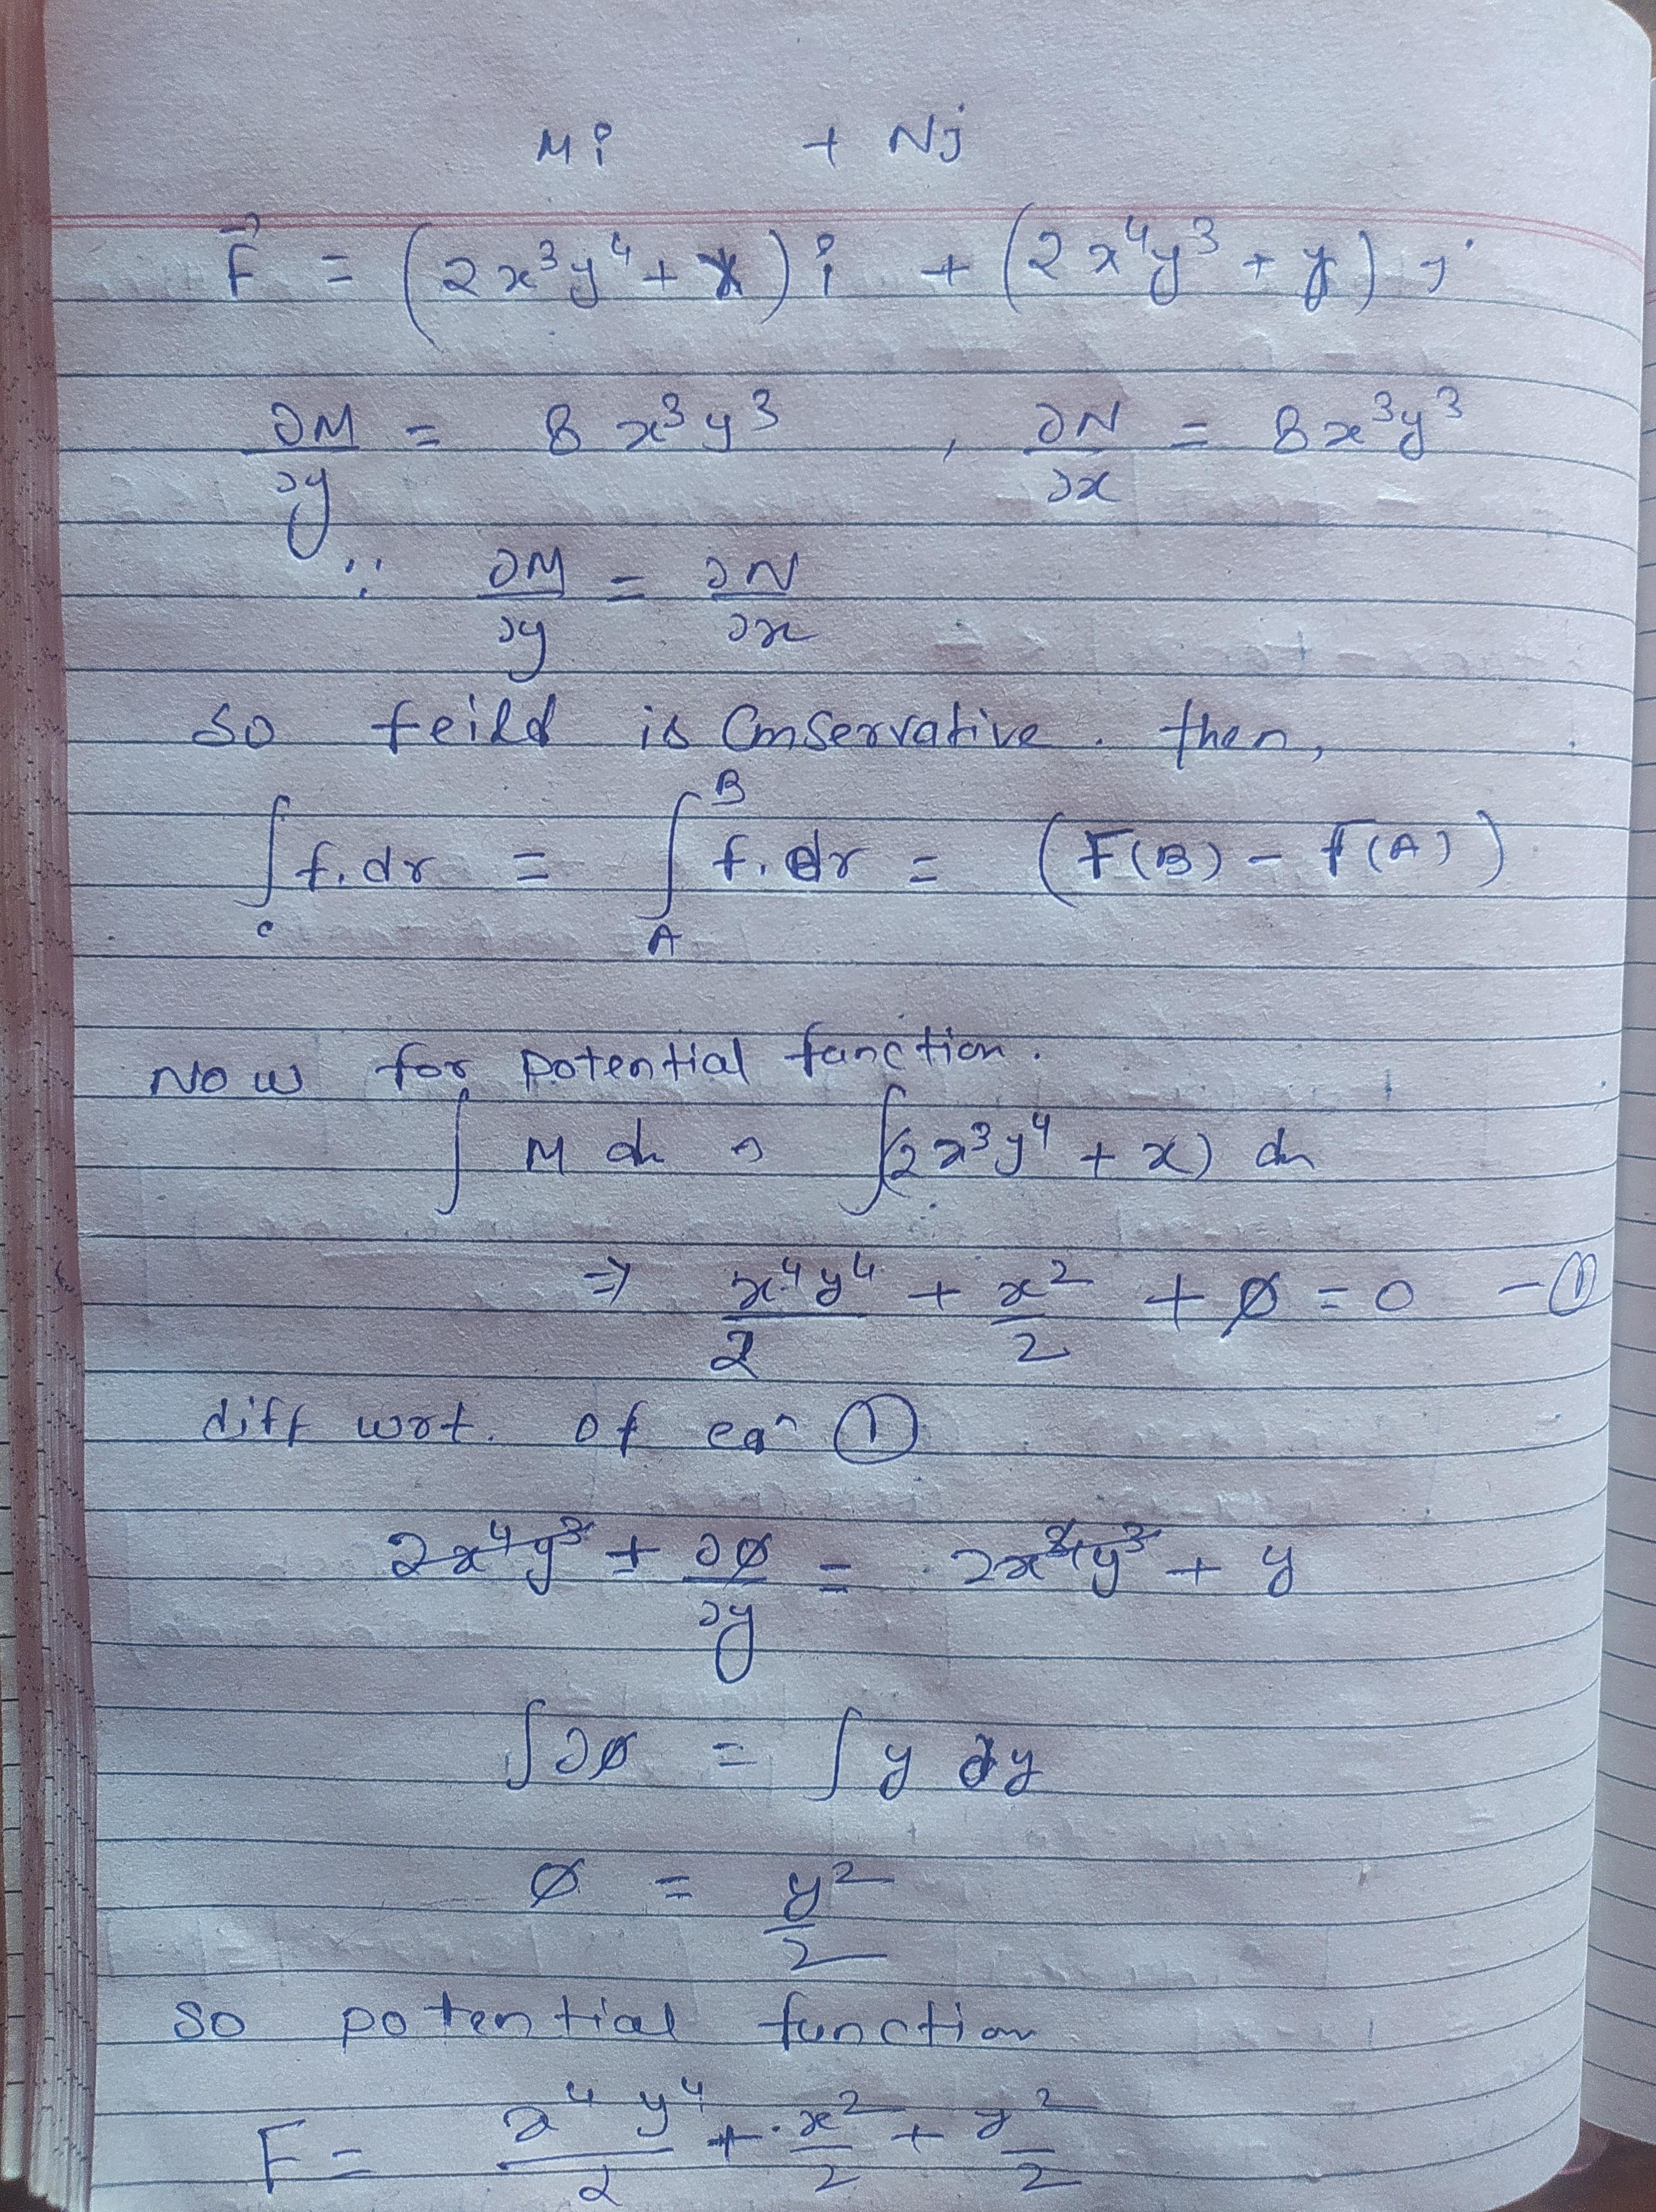 Mi + Nj
F⃗ = (2x³y⁴ + x) i + (2x⁴y³ + y) j
∂M/∂y = 8x³y³ , ∂N/∂x = 8x³y³
∵ ∂M/∂y = ∂N/∂x
so feild is Conservative . then,
∫_c f.dr = ∫_A^B f.dr = (F(B) - F(A))
Now for potential function.
∫ M dx ⇒ ∫(2x³y⁴ + x) dx
⇒ x⁴y⁴/2 + x²/2 + ø = 0 - ①
diff wrt. of eqⁿ ①
2x⁴y³ + ∂ø/∂y = 2x⁴y³ + y
∫∂ø = ∫ y ∂y
ø = y²/2
so potential function
F = x⁴y⁴/2 + x²/2 + y²/2